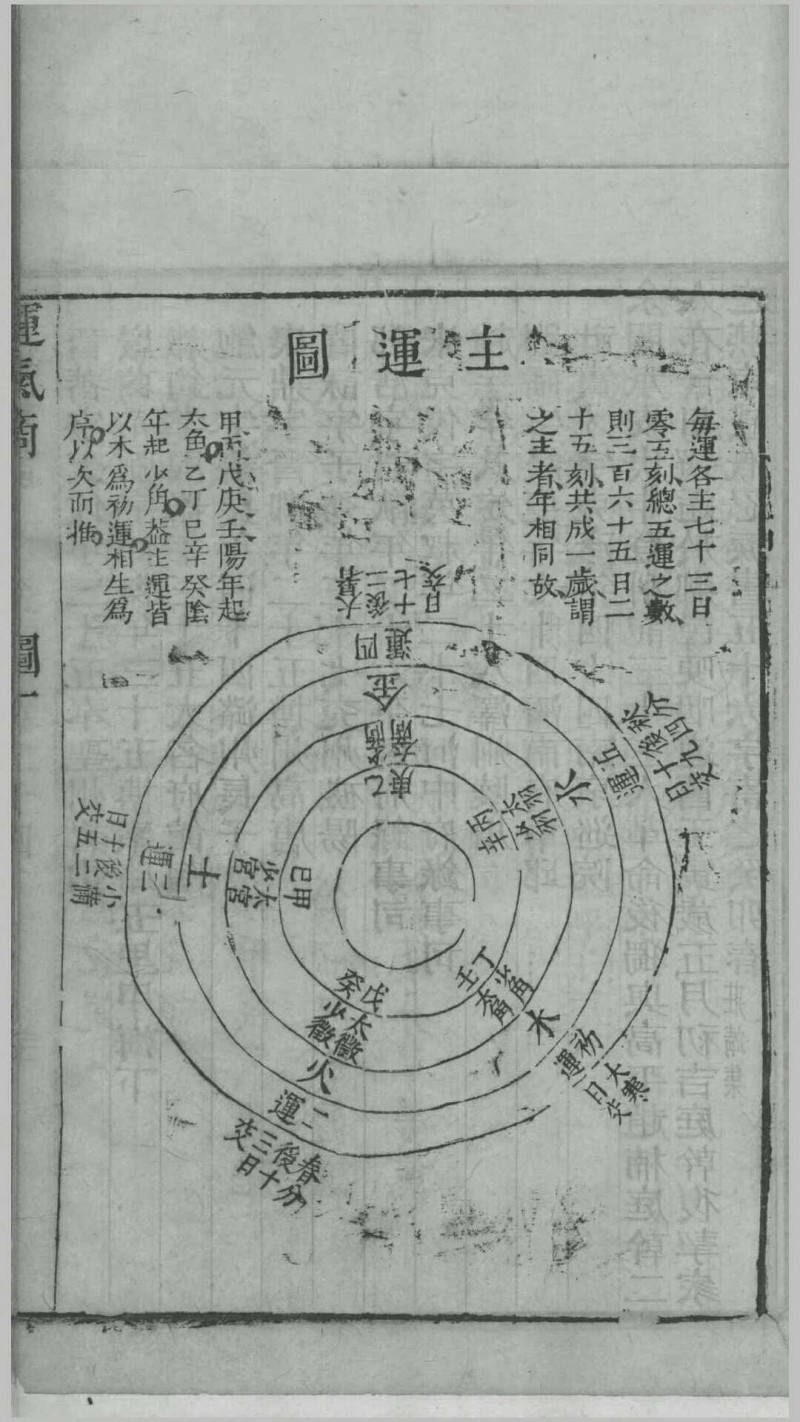 主運圖
每運各主七十三日
零五刻總五運之數
則三百六十五日二
十五刻共成一歲謂
之主者年相同故
甲丙戊庚壬陽年起
太角乙丁巳辛癸陰
年起少角葢主運皆
以木爲初運相生爲
序以次而推
大寒日交
初運
木
少角
太角
丁
壬
春分後十三日交
二運
火
太徵
少徵
戊
癸
小滿後二十五日交
三運
土
太宮
少宮
甲
巳
大暑後三十七日交
四運
金
太商
少商
庚
乙
秋分後四十九日交
五運
水
太羽
少羽
丙
辛
運氣
圖一